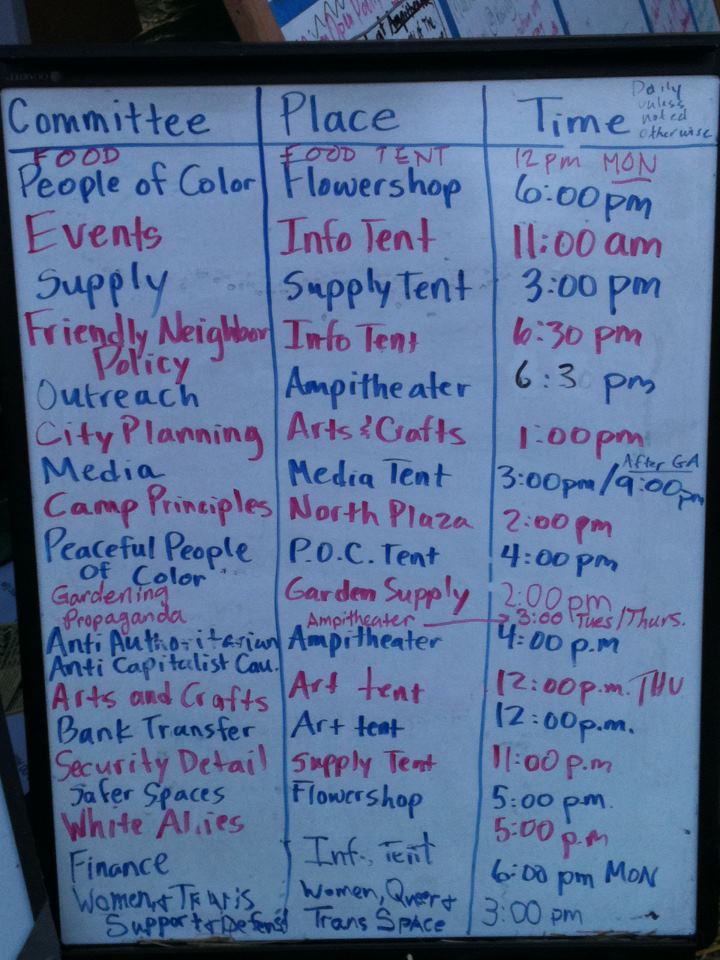 Committee Place Time Daily unless noted otherwise
FOOD FOOD TENT 12pm MON
People of Color Flowershop 6:00pm
Events Info Tent 11:00 am
Supply Supply Tent 3:00 pm
Friendly Neighbor Info Tent 6:30 pm
Policy
Outreach Ampitheater 6:3 pm
City Planning Arts & Crafts 1:00pm
Media Media Tent 3:00pm/9:00pm After GA
Camp Principles North Plaza 2:00 pm
Peaceful People P.O.C. Tent 4:00 pm
Of Color
Gardening Garden Supply 2:00 pm
Propaganda Ampitheater 3:00 Tues/Thurs.
Anti Authoritarian Ampitheater 4:00 p.m
Anti Capitalist Cau.
Arts and Crafts Art tent 12:00p.m. THU
Bank Transfer Art tent 12:00p.m.
Security Detail Supply Tent 11:00 p.m
Safer Spaces Flowershop 5:00 pm.
White Allies 5:00 p.m
Finance Info Tent 6:00 pm MON
Women + Trans Women, Queer + 3:00 pm
Support + Defense Trans Space